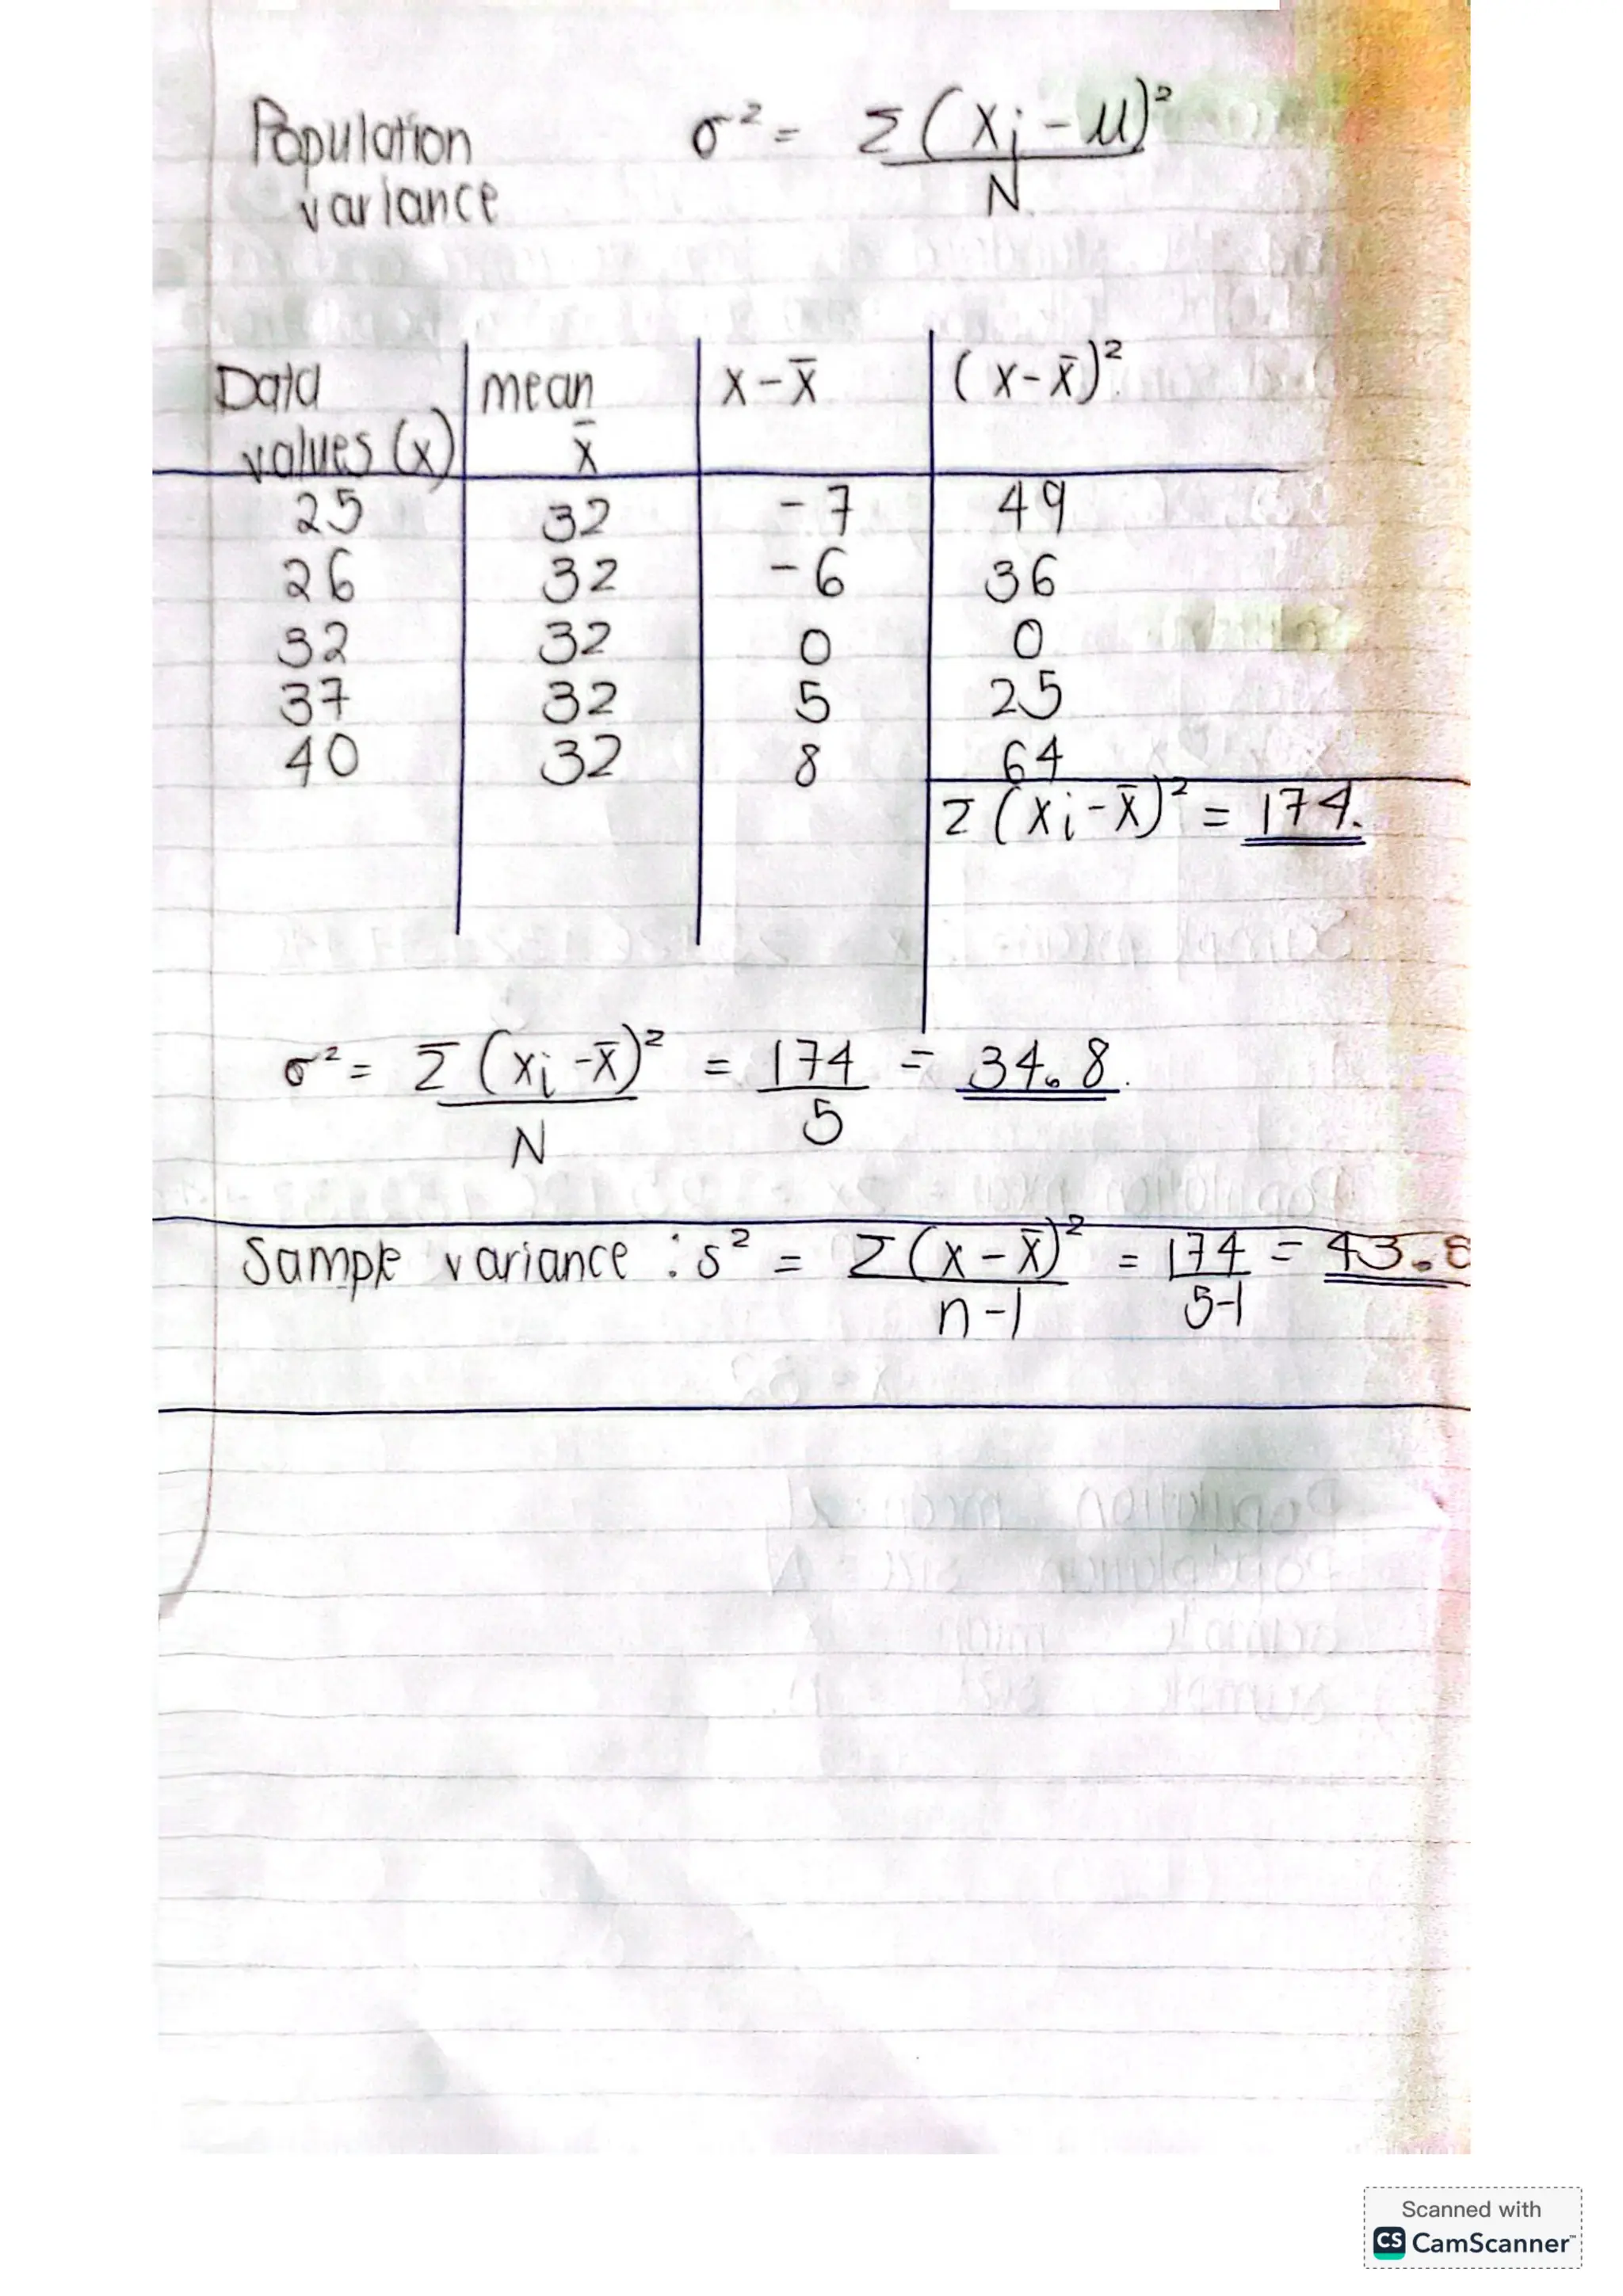 Population variance σ² = Σ(xᵢ - μ)² / N
Data values (x) | mean x̄ | x - x̄ | (x - x̄)²
25 | 32 | -7 | 49
26 | 32 | -6 | 36
32 | 32 | 0 | 0
37 | 32 | 5 | 25
40 | 32 | 8 | 64
Σ(xᵢ - x̄)² = 174.
σ² = Σ(xᵢ - x̄)² / N = 174 / 5 = 34.8.
Sample variance : s² = Σ(x - x̄)² / n-1 = 174 / 5-1 = 43.
Scanned with
CS CamScanner™